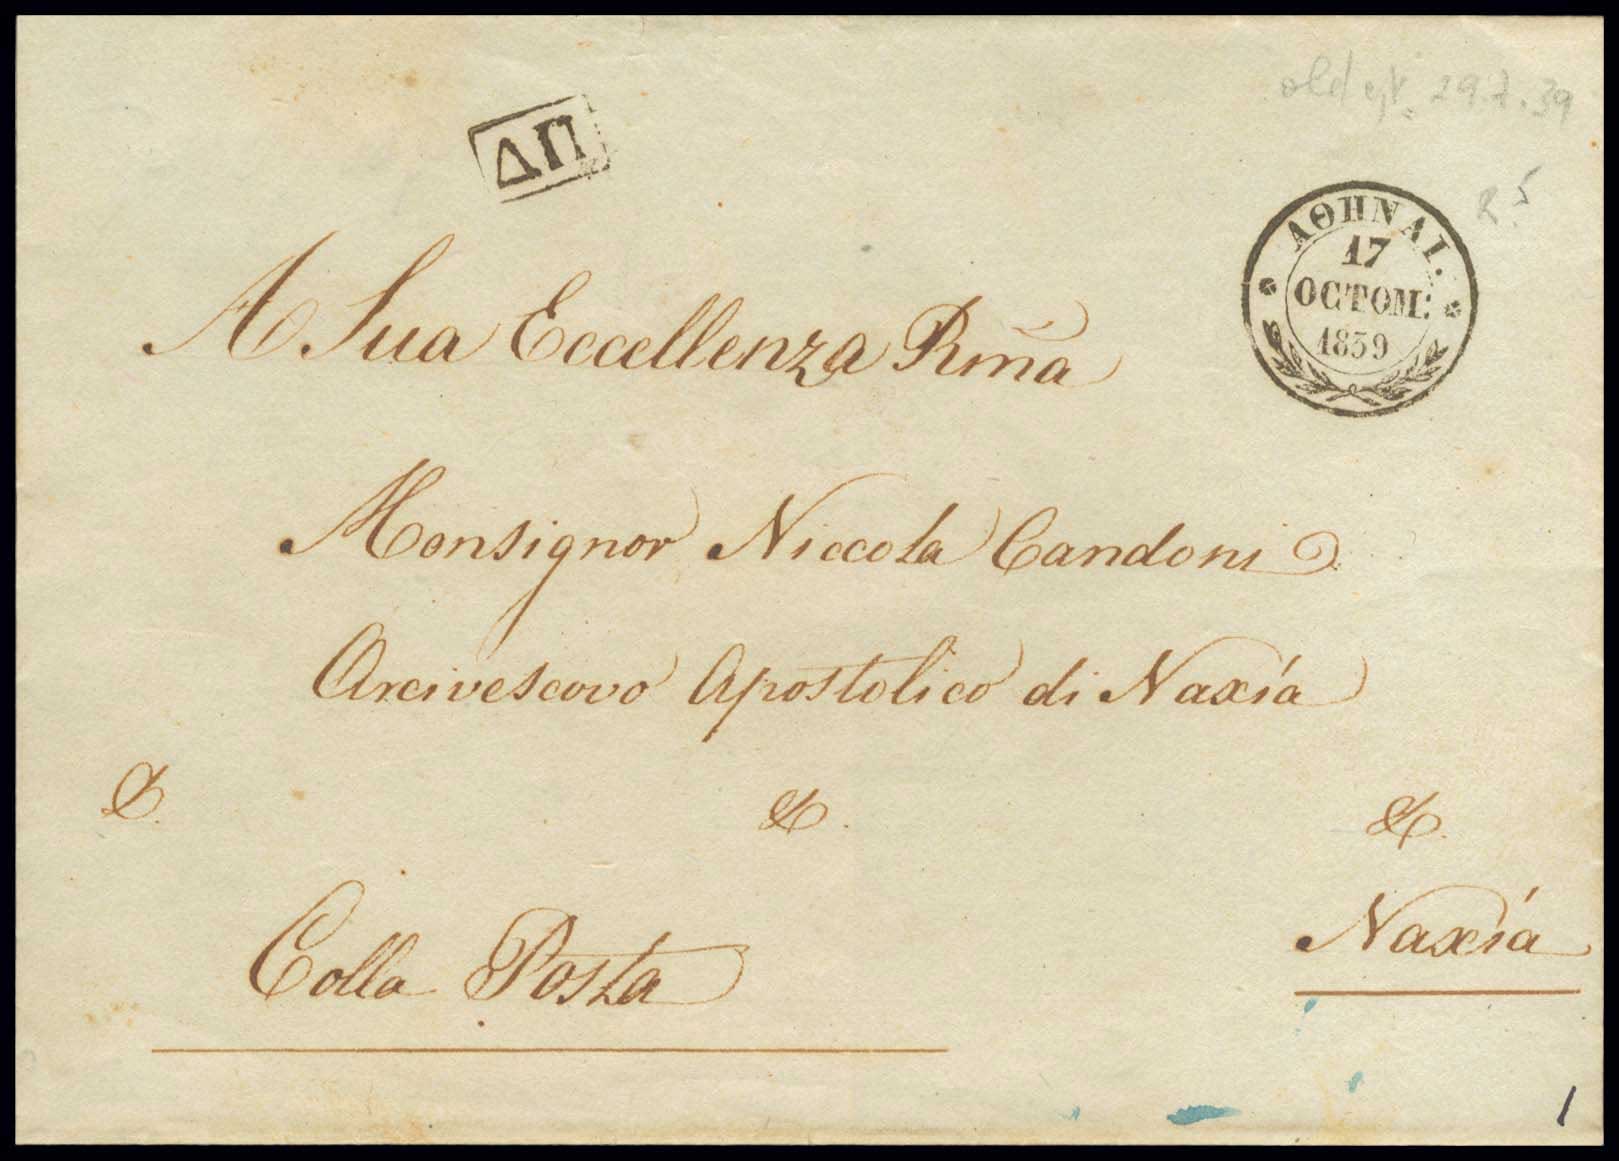 29.7.39
ΔΠ
ΑΘΗΝΑΙ.
17
ΟCΤΟΜ:
1839
A Sua Eccellenza Rm̃a
Monsignor Niccola Candoni
Arcivescovo Apostolico di Naxía
&. &. &.
Naxía
Colla Posta
1